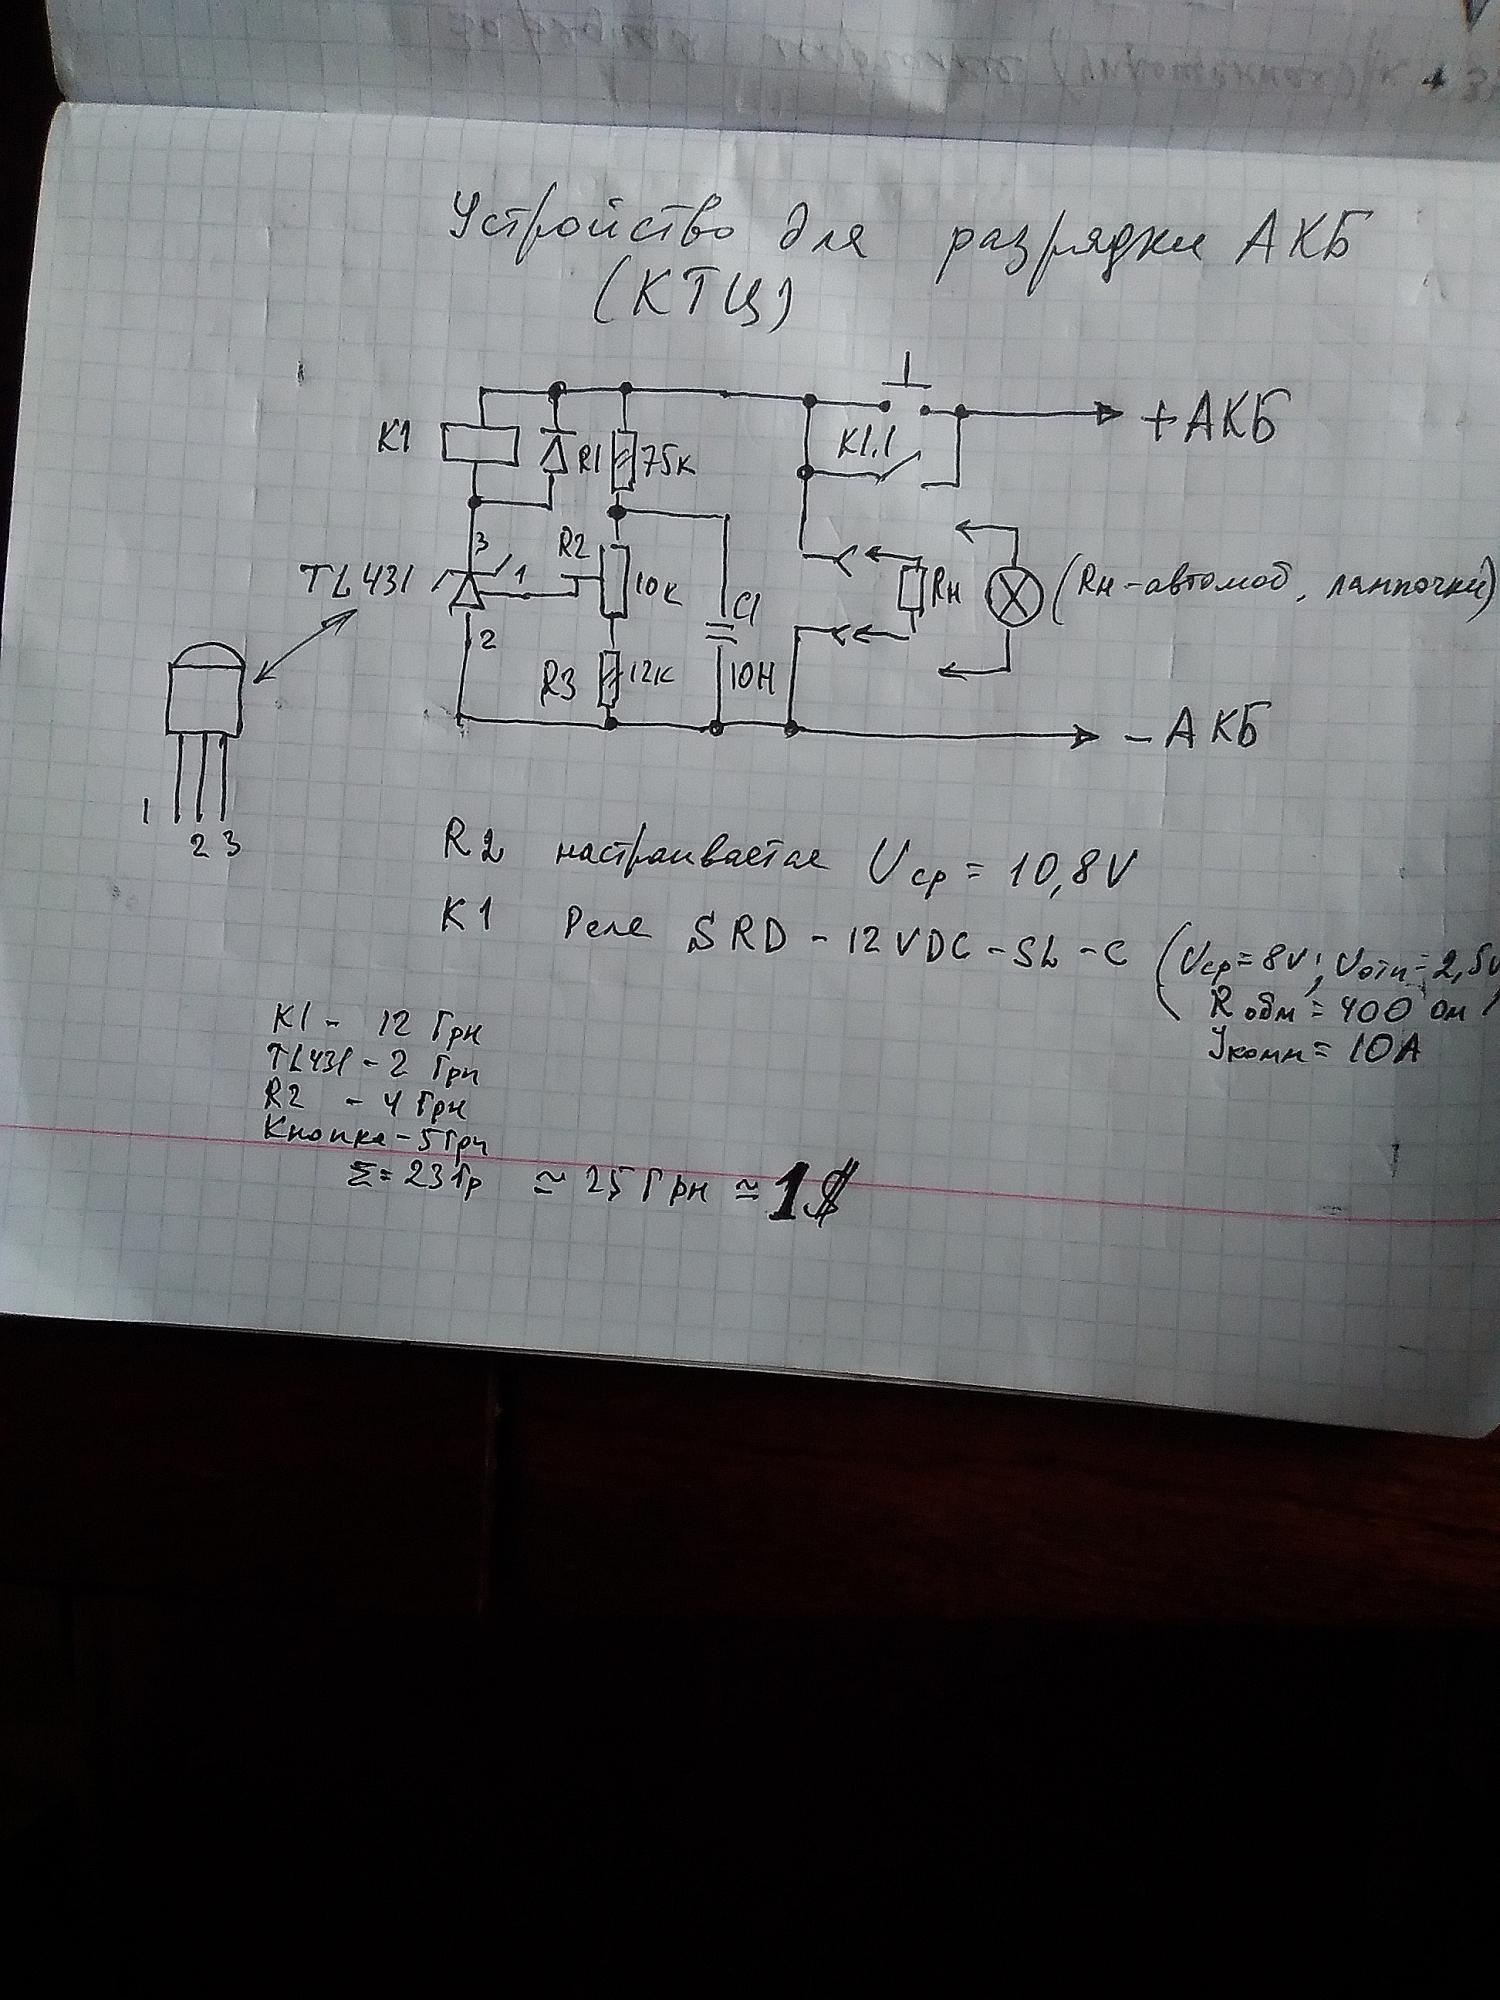 Устройство для разрядки АКБ
(КТЦ)
K1
R1
75к
K1.1
+АКБ
3
R2
TL431
1
10к
C1
Rн
(Rн-автомоб, лампочки)
2
R3
12к
10Н
-АКБ
1
2 3
R2 настраивается Uср = 10,8V
K1 Реле SRD - 12VDC - SL - C (Uср = 8V; Uотп = 2,5V
Rобм = 400 ом)
Jкомм = 10A
K1 - 12 Грн
TL431 - 2 Грн
R2 - 4 Грн
Кнопка - 5 Грн
Σ = 23 Гр ≃ 25 Грн ≃ 1$